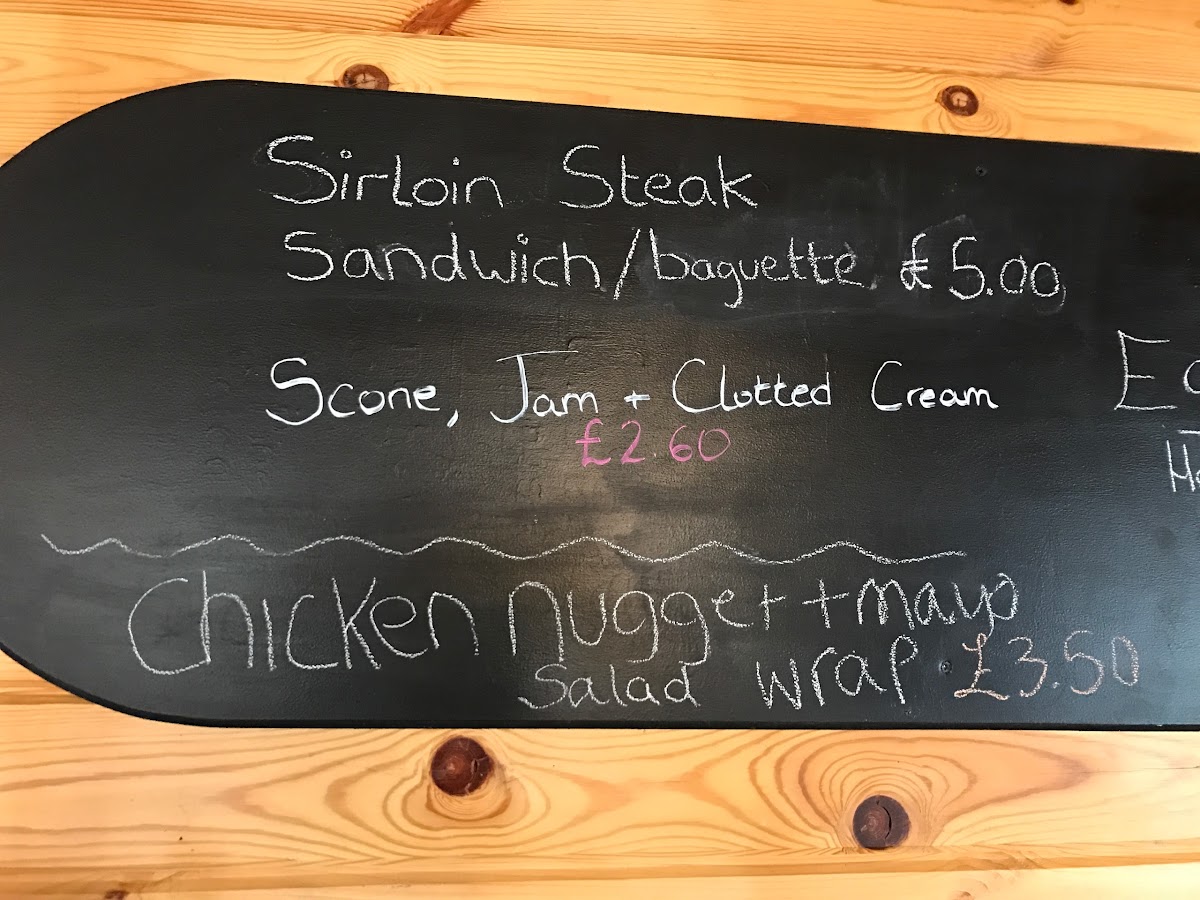 Sirloin Steak
Sandwich/baguette £5.00
Scone, Jam + Clotted Cream
£2.60
Chicken nugget + mayo
Salad wrap £3.50